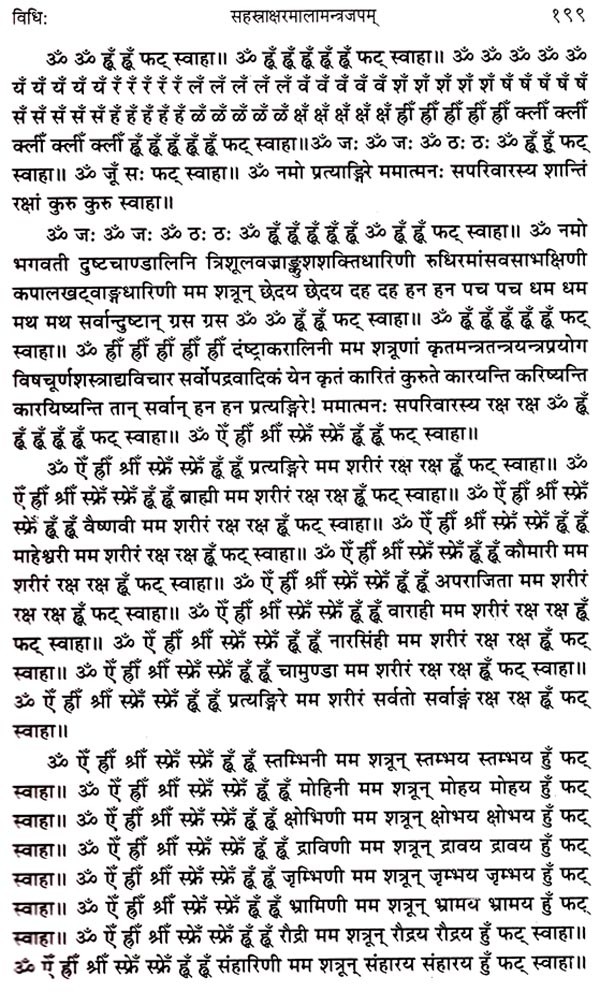 विधिः सहस्राक्षरमालामन्त्रजपम् १९९
ॐ ॐ ह्रूँ ह्रूँ फट् स्वाहा॥ ॐ ह्रूँ ह्रूँ ह्रूँ ह्रूँ ह्रूँ फट् स्वाहा॥ ॐ ॐ ॐ ॐ ॐ
यँ यँ यँ यँ यँ रँ रँ रँ रँ रँ लँ लँ लँ लँ लँ वँ वँ वँ वँ वँ शँ शँ शँ शँ शँ षँ षँ षँ षँ षँ
सँ सँ सँ सँ सँ हँ हँ हँ हँ हँ ळँ ळँ ळँ ळँ ळँ क्षँ क्षँ क्षँ क्षँ क्षँ ह्रीँ ह्रीँ ह्रीँ ह्रीँ ह्रीँ क्लीँ क्लीँ
क्लीँ क्लीँ क्लीँ ह्रूँ ह्रूँ ह्रूँ ह्रूँ ह्रूँ फट् स्वाहा॥ॐ जः ॐ जः ॐ ठः ठः ॐ ह्रूँ ह्रूँ फट्
स्वाहा॥ ॐ जूँ सः फट् स्वाहा॥ ॐ नमो प्रत्याङ्गिरे ममात्मनः सपरिवारस्य शान्तिं
रक्षां कुरु कुरु स्वाहा॥
ॐ जः ॐ जः ॐ ठः ठः ॐ ह्रूँ ह्रूँ ह्रूँ ह्रूँ ह्रूँ ॐ ह्रूँ ह्रूँ फट् स्वाहा॥ ॐ नमो
भगवती दुष्टचाण्डालिनि त्रिशूलवज्राङ्कुशशक्तिधारिणी रुधिरमांसवसाभक्षिणी
कपालखट्वाङ्गधारिणी मम शत्रून् छेदय छेदय दह दह हन हन पच पच धम धम
मथ मथ सर्वान्दुष्टान् ग्रस ग्रस ॐ ॐ ह्रूँ ह्रूँ फट् स्वाहा॥ ॐ ह्रूँ ह्रूँ ह्रूँ ह्रूँ ह्रूँ फट्
स्वाहा॥ ॐ ह्रीँ ह्रीँ ह्रीँ ह्रीँ ह्रीँ दंष्ट्राकरालिनी मम शत्रूणां कृतमन्त्रतन्त्रयन्त्रप्रयोग
विषचूर्णशस्त्राद्यविचार सर्वोपद्रवादिकं येन कृतं कारितं कुरुते कारयन्ति करिष्यन्ति
कारयिष्यन्ति तान् सर्वान् हन हन प्रत्यङ्गिरे! ममात्मनः सपरिवारस्य रक्ष रक्ष ॐ ह्रूँ
ह्रूँ ह्रूँ ह्रूँ ह्रूँ फट् स्वाहा॥ ॐ ऐँ ह्रीँ श्रीँ स्फ्रेँ स्फ्रेँ ह्रूँ फट् स्वाहा॥
ॐ ऐँ ह्रीँ श्रीँ स्फ्रेँ स्फ्रेँ ह्रूँ ह्रूँ प्रत्यङ्गिरे मम शरीरं रक्ष रक्ष ह्रूँ फट् स्वाहा॥ ॐ
ऐँ ह्रीँ श्रीँ स्फ्रेँ स्फ्रेँ ह्रूँ ह्रूँ ब्राह्मी मम शरीरं रक्ष रक्ष ह्रूँ फट् स्वाहा॥ ॐ ऐँ ह्रीँ श्रीँ स्फ्रेँ
स्फ्रेँ ह्रूँ ह्रूँ वैष्णवी मम शरीरं रक्ष रक्ष ह्रूँ फट् स्वाहा॥ ॐ ऐँ ह्रीँ श्रीँ स्फ्रेँ स्फ्रेँ ह्रूँ ह्रूँ
माहेश्वरी मम शरीरं रक्ष रक्ष ह्रूँ फट् स्वाहा॥ ॐ ऐँ ह्रीँ श्रीँ स्फ्रेँ स्फ्रेँ ह्रूँ ह्रूँ कौमारी मम
शरीरं रक्ष रक्ष ह्रूँ फट् स्वाहा॥ ॐ ऐँ ह्रीँ श्रीँ स्फ्रेँ स्फ्रेँ ह्रूँ ह्रूँ अपराजिता मम शरीरं
रक्ष रक्ष ह्रूँ फट् स्वाहा॥ ॐ ऐँ ह्रीँ श्रीँ स्फ्रेँ स्फ्रेँ ह्रूँ ह्रूँ वाराही मम शरीरं रक्ष रक्ष ह्रूँ
फट् स्वाहा॥ ॐ ऐँ ह्रीँ श्रीँ स्फ्रेँ स्फ्रेँ ह्रूँ ह्रूँ नारसिंही मम शरीरं रक्ष रक्ष ह्रूँ फट्
स्वाहा॥ ॐ ऐँ ह्रीँ श्रीँ स्फ्रेँ स्फ्रेँ ह्रूँ ह्रूँ चामुण्डा मम शरीरं रक्ष रक्ष ह्रूँ फट् स्वाहा॥
ॐ ऐँ ह्रीँ श्रीँ स्फ्रेँ स्फ्रेँ ह्रूँ ह्रूँ प्रत्यङ्गिरे मम शरीरं सर्वतो सर्वाङ्गं रक्ष रक्ष ह्रूँ फट्
स्वाहा॥
ॐ ऐँ ह्रीँ श्रीँ स्फ्रेँ स्फ्रेँ ह्रूँ ह्रूँ स्तम्भिनी मम शत्रून् स्तम्भय स्तम्भय हुँ फट्
स्वाहा॥ ॐ ऐँ ह्रीँ श्रीँ स्फ्रेँ स्फ्रेँ ह्रूँ ह्रूँ मोहिनी मम शत्रून् मोहय मोहय हुँ फट्
स्वाहा॥ ॐ ऐँ ह्रीँ श्रीँ स्फ्रेँ स्फ्रेँ ह्रूँ ह्रूँ क्षोभिणी मम शत्रून् क्षोभय क्षोभय हुँ फट्
स्वाहा॥ ॐ ऐँ ह्रीँ श्रीँ स्फ्रेँ स्फ्रेँ ह्रूँ ह्रूँ द्राविणी मम शत्रून् द्रावय द्रावय हुँ फट्
स्वाहा॥ ॐ ऐँ ह्रीँ श्रीँ स्फ्रेँ स्फ्रेँ ह्रूँ ह्रूँ जृम्भिणी मम शत्रून् जृम्भय जृम्भय हुँ फट्
स्वाहा॥ ॐ ऐँ ह्रीँ श्रीँ स्फ्रेँ स्फ्रेँ ह्रूँ ह्रूँ भ्रामिणी मम शत्रून् भ्रामय भ्रामय हुँ फट्
स्वाहा॥ ॐ ऐँ ह्रीँ श्रीँ स्फ्रेँ स्फ्रेँ ह्रूँ ह्रूँ रौद्री मम शत्रून् रौद्रय रौद्रय हुँ फट् स्वाहा॥
ॐ ऐँ ह्रीँ श्रीँ स्फ्रेँ स्फ्रेँ ह्रूँ ह्रूँ संहारिणी मम शत्रून् संहारय संहारय हुँ फट् स्वाहा॥